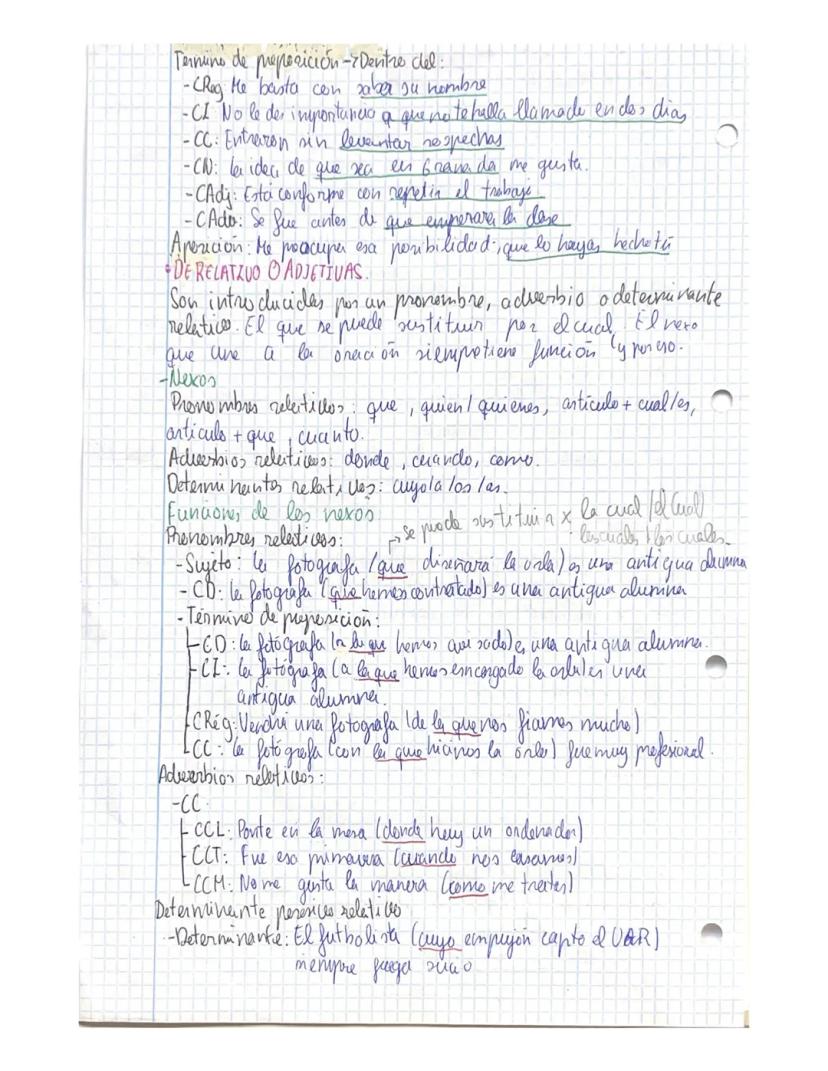 Término de preposición → Dentro del:
- CReg Me basta con saber su nombre
- CI No le des importancia a que no te halla llamado en dos dias
- CC: Entraron sin levantar sospechas
- CN: la idea de que sea en Granada me gusta.
- CAdj: Está conforme con repetir el trabajo
- CAdv: Se fue antes de que empezara la clase
Aposición: Me preocupa esa posibilidad, que lo hayas hecho tú
DE RELATIVO O ADJETIVAS.
Son introducidas por un pronombre, adverbio o determinante
relativo. El que se puede sustituir por el cual. El nexo
que une a la oración siempre tiene función y por eso.
- Nexos
Pronombres relativos: que, quien/quienes, artículo + cual/es,
artículo + que, cuanto.
Adverbios relativos: donde, cuando, como.
Determinantes relativos: cuyo/a/os/as.
Funciones de los nexos
→ se puede sustituir x la cual/el cual
Pronombres relativos: los cuales/las cuales.
- Sujeto: la fotografa (que diseñará la orla) es una antigua alumna
- CD: la fotógrafa (que hemos contratado) es una antigua alumna
- Término de preposición:
CD: la fotógrafa (a la que hemos avisado) es una antigua alumna.
CI: la fotógrafa (a la que hemos encargado la orla) es una
antigua alumna.
CRég: Vendrá una fotógrafa (de la que nos fiamos mucho)
CC: la fotógrafa (con la que hicimos la orla) fue muy profesional.
Adverbios relativos:
- CC
CCL: Ponte en la mesa (donde hay un ordenador)
CCT: Fue esa primavera (cuando nos casamos)
CCM: No me gusta la manera (como me tratas)
Determinante posesivo relativo
- Determinante: El futbolista (cuyo empujón capto el VAR)
siempre juega sucio